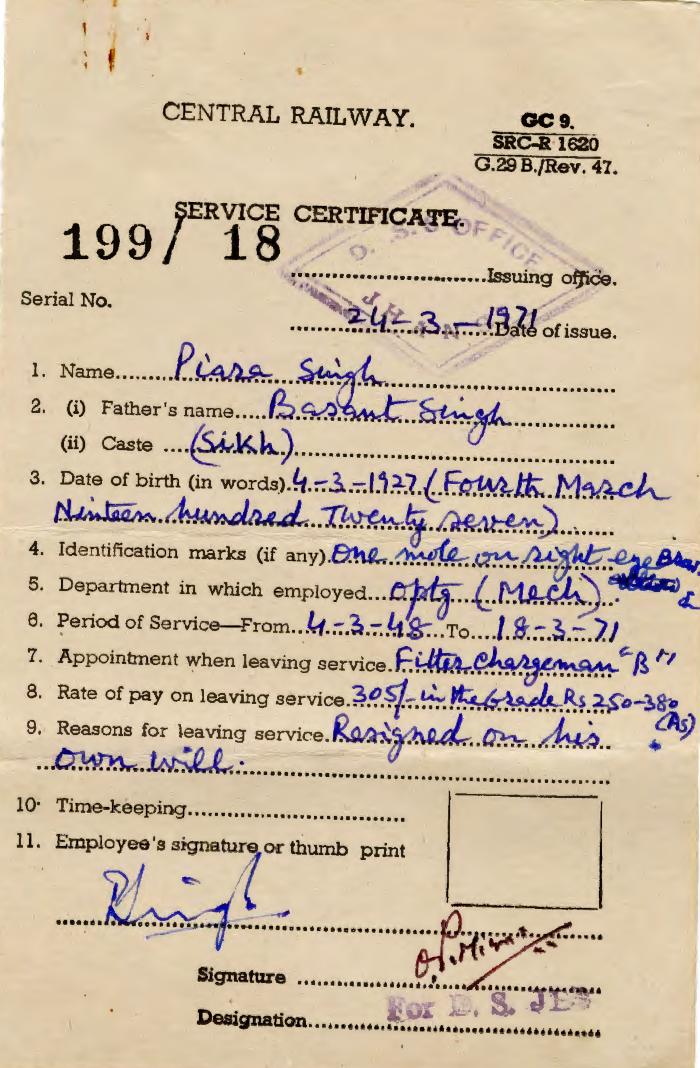 CENTRAL RAILWAY.
GC 9.
SRC-R 1620
G.29 B./Rev. 47.
SERVICE CERTIFICATE.
199/ 18
D. S.'S OFFICE
JHANSI
..............................Issuing office.
Serial No.
24-3-1971 Date of issue.
1. Name......Piara Singh
2. (i) Father's name....Basant Singh
(ii) Caste ....(Sikh)
3. Date of birth (in words).4-3-1927 (Fourth March
Ninteen hundred Twenty seven)
4. Identification marks (if any).One mole on right eye Brow
5. Department in which employed...optg (Mech).
6. Period of Service—From...4-3-48...To...18-3-71
7. Appointment when leaving service.Fitter chargeman "B"
8. Rate of pay on leaving service.305/- in the Grade Rs 250-380
(AS)
9. Reasons for leaving service.Resigned on his
own will.
10. Time-keeping..............................
11. Employee's signature or thumb print
Signature ..............................
For D. S. JHS
Designation..............................